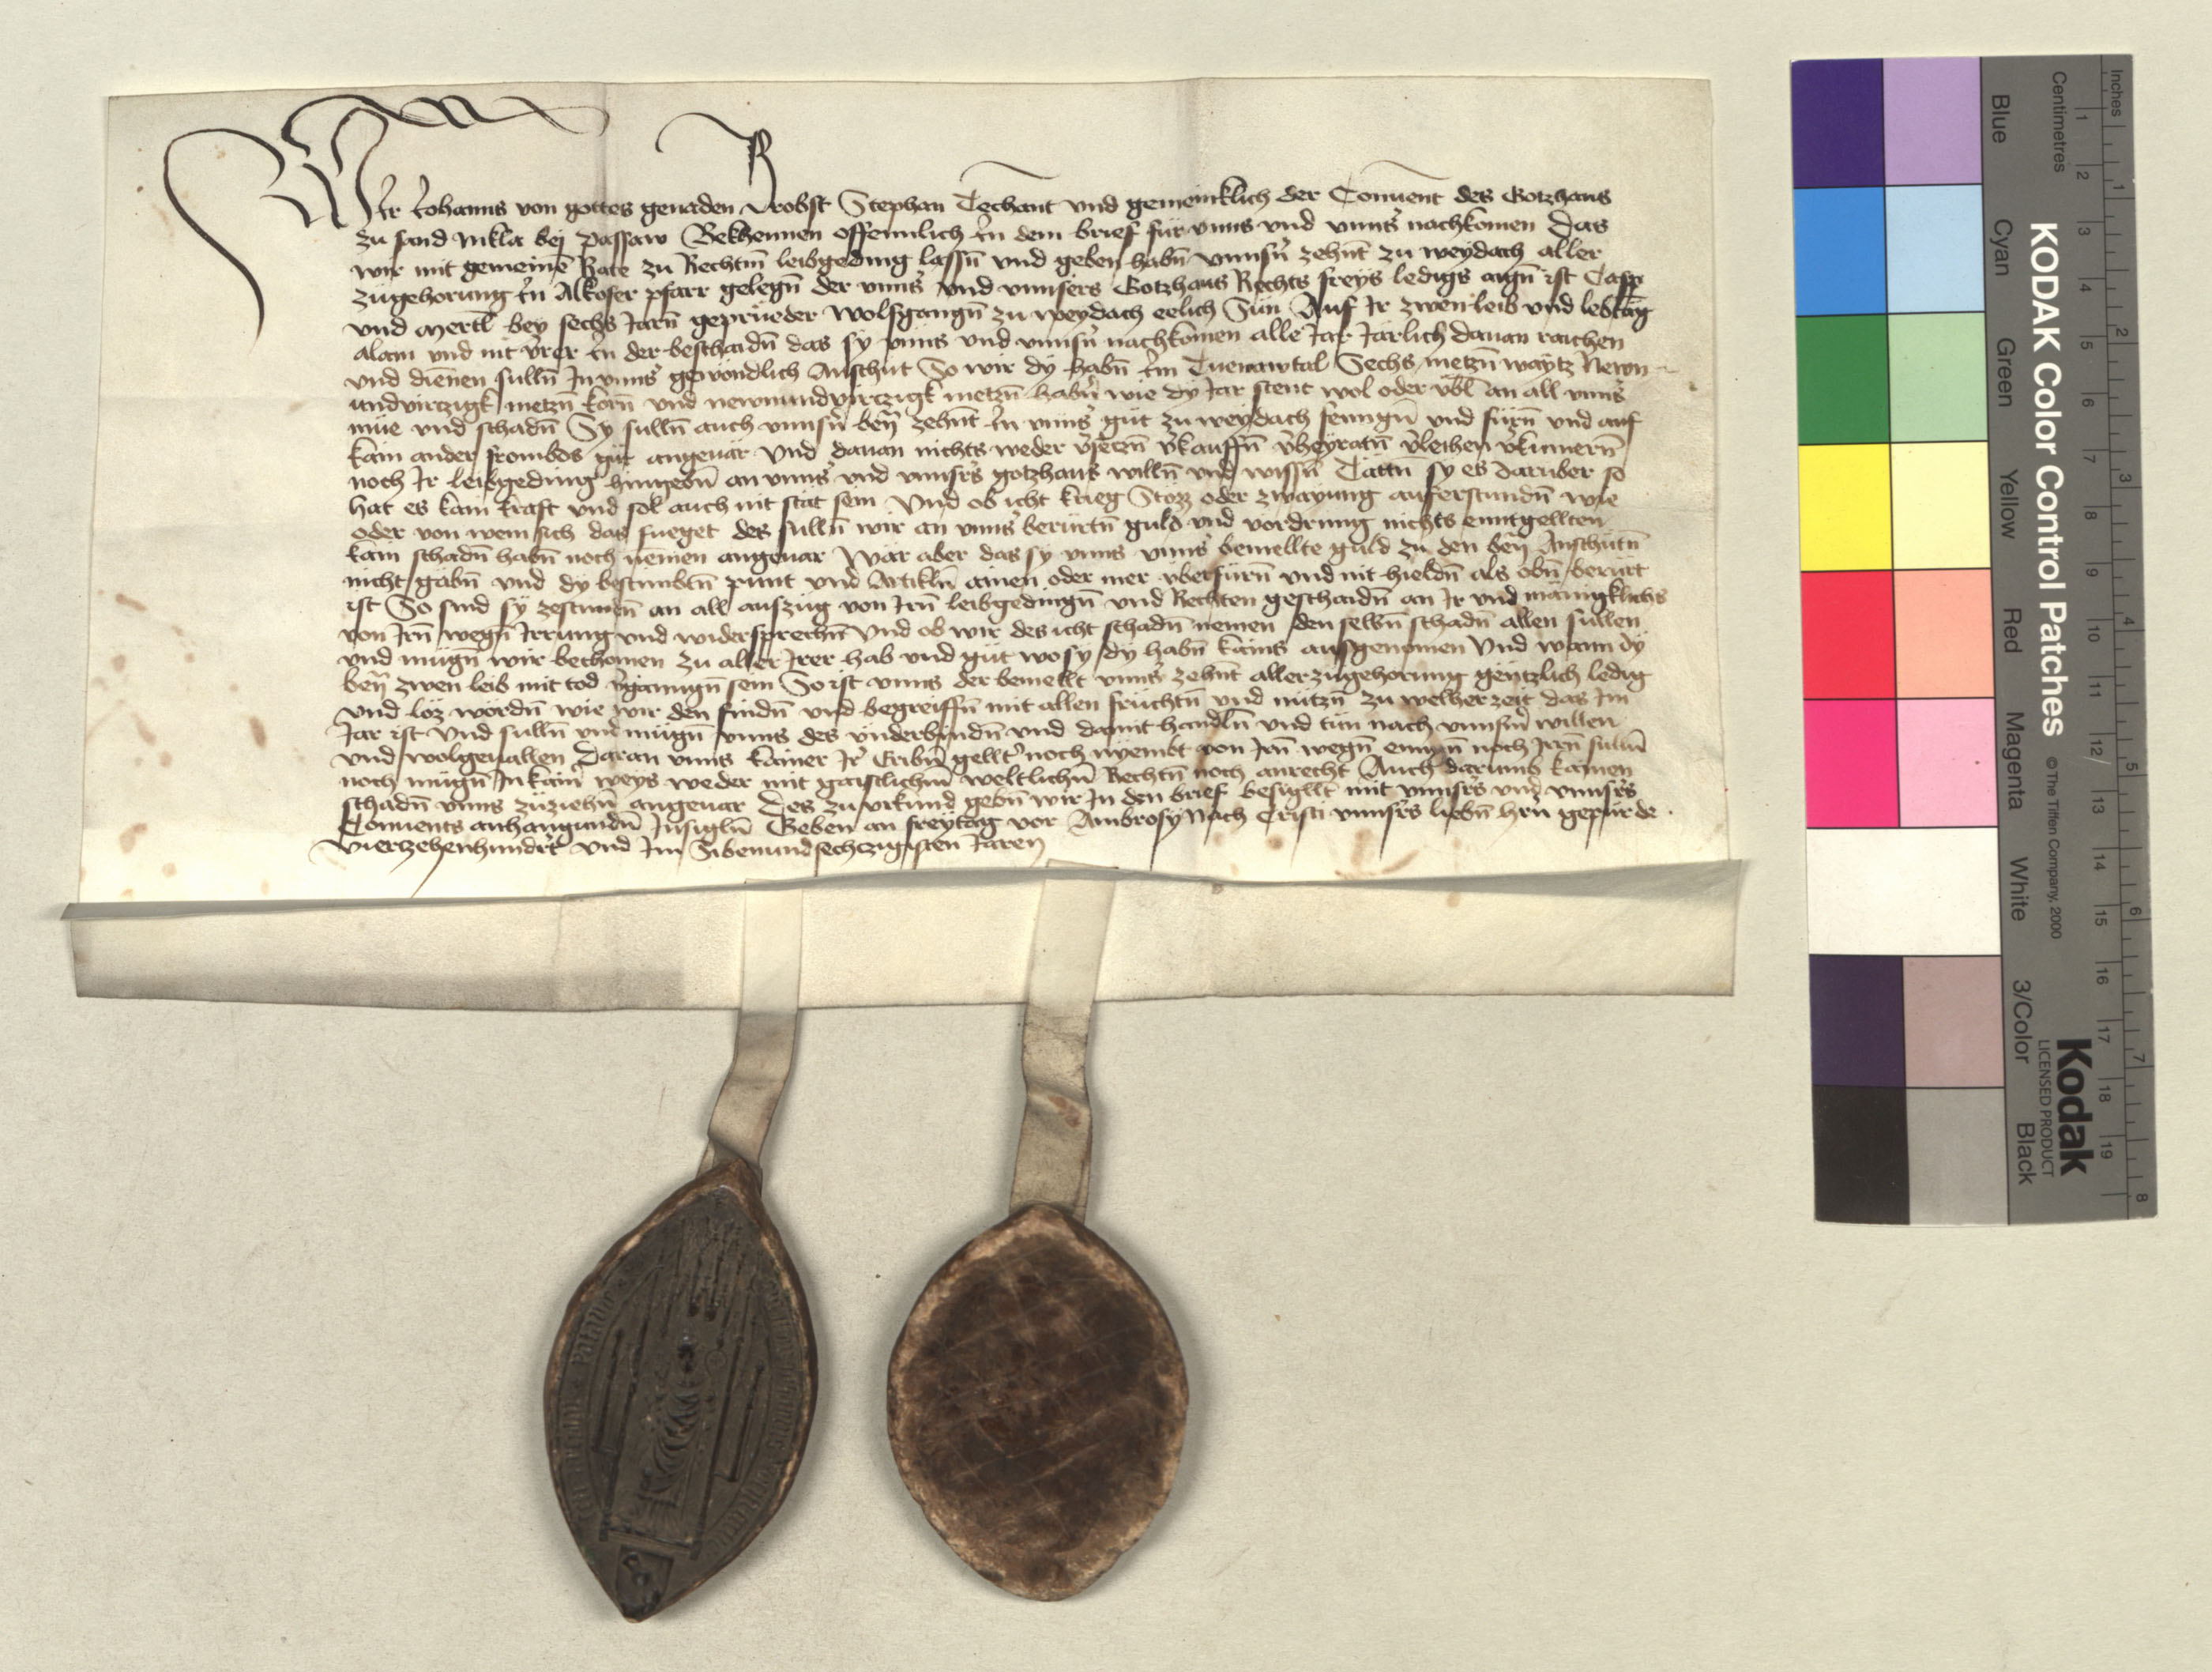 Wir Johanns von gottes genaden Brobst Stephan Techant vnd gemeincklich der Conuent des Gotzhaus
zu sand Nikla bej passaw Bekhennen offennlich Jn dem brief für vnns vnd vnns' nachkomen Das
wir mit gemeinē Rate zu Rechtm̄ leibgeding lassn̄ vnd geben habn̄ vnnsn̄ zehnt zu weydach aller
zugehorung Jn Alkofer pfarr gelegn̄ der vnns' vnd vnnsers Gotzhaus Rechts freys ledigs aign̄ ist Casp
vnd Mertl̄ bey sechs Jarn̄ geprüeder wolfgangn̄ zu weydach eelich Sün Auf Jr zwen leib vnd lebtäg
alain vnd nit v̄rer Jn der beschaidn̄ das sy vnns vnd vnnsn̄ nachkömen alle Jar Järlich dauan raichen
vnd dienen sulln̄ Jn vnns' gewondlich Anschüt So wir dy habn̄ Jm Tuenawtal Sechs metzn̄ waytz Newn
undvirtzigk metzn̄ korn̄ vnd newnundvirtzigk metzn̄ habn̄ wie dy Jar stent wol oder v̈bl an all vnns'
müe vnd schadn̄ Sy sulln̄ auch vnnsn̄ ben̄ zehnt Jn vnns' güt zu weydach fenngn̄ vnd fürn̄ vnd auf
kain ander frombds güt angeuär Vnd dauan nichts weder v̄setzn̄ v̄kauffn̄ v̄heyratn̄ v̄leihen v̄kümern̄
noch Jr leibgeding hingebn̄ an vnns' vnd vnnsers gotzhaus willn̄ vnd wissn̄ Tättn̄ sy es darüber so
hat es kain kraft vnd sol auch nit stät sein Vnd ob icht krieg Stozz oder zwayung auferstundn̄ wie
oder von wem sich das fueget des sulln̄ wir an vnns' berürtn̄ güld vnd vordrung nichts enntgellten
kain schadn̄ habn̄ noch nemen angeuar Wär aber das sy vnns vnns' bemellte güld zu den ben̄ Anschütn̄
nicht gäbn̄ vnd dy bestimbtn̄ punt vnd Artikln̄ ainen oder mer überfürn̄ vnd nit hieldn̄ als obn̄ berürt
ist So sind sy zestundn̄ an all auszüg von Jrn̄ leibgedingn̄ vnd Rechten geschaidn̄ an Jr vnd mänigklichs
von Jrn̄ wegn̄ Jrrung vnd widersprechn̄ Vnd ob wir des icht schadn̄ nemen den selbn̄ schadn̄ allen süllen
vnd mügn̄ wir bechomen zu aller Jrer hab vnd güt wo sy dy habn̄ kains ausgenomen Vnd wann dy
ben̄ zwen leib mit tod v̄ganngn̄ sein So ist vnns der bemellt vnns' zehnt aller zugehorung gentzlich ledig
vnd löz wordn̄ wie wir den findn̄ vnd begreiffn̄ mit allen früchtn̄ vnd nützn̄ zu welher zeit das Jm
Jar ist Vnd sulln̄ vnd mügn̄ vnns des vnderbindn̄ vnd damit handln̄ vnd tün nach vnnsm̄ willen
vnd wolgeuallen Daran vnns kainer Jr' Eribn̄ gellt' noch nyembt von Jrn̄ wegn̄ enngn̄ noch Jrrn̄ sulln̄
noch mügn̄ Jn kain weys weder mit gaistlichm̄ weltlichm̄ Rechtn̄ noch anrecht Auch darumb kainen
schadn̄ vnns züziehn̄ angeuar Des zu vrkund gebn̄ wir Jn den brief besigllt mit vnnsers vnd vnnsers
Conuents anhangundn̄ Jnsigln̄ Geben an freytag vor Ambrosy Nach Cristi vnnsers liebn̄ hrn̄ gepürde
Viertzehenhundert vnd Jm Sibenundsechtzigisten Jaren
KODAK Color Control Patches
© The Tiffen Company, 2000
Kodak
LICENSED PRODUCT
Inches 1 2 3 4 5 6 7 8
Centimetres 1 2 3 4 5 6 7 8 9 10 11 12 13 14 15 16 17 18 19
Blue Cyan Green Yellow Red Magenta White 3/Color Black